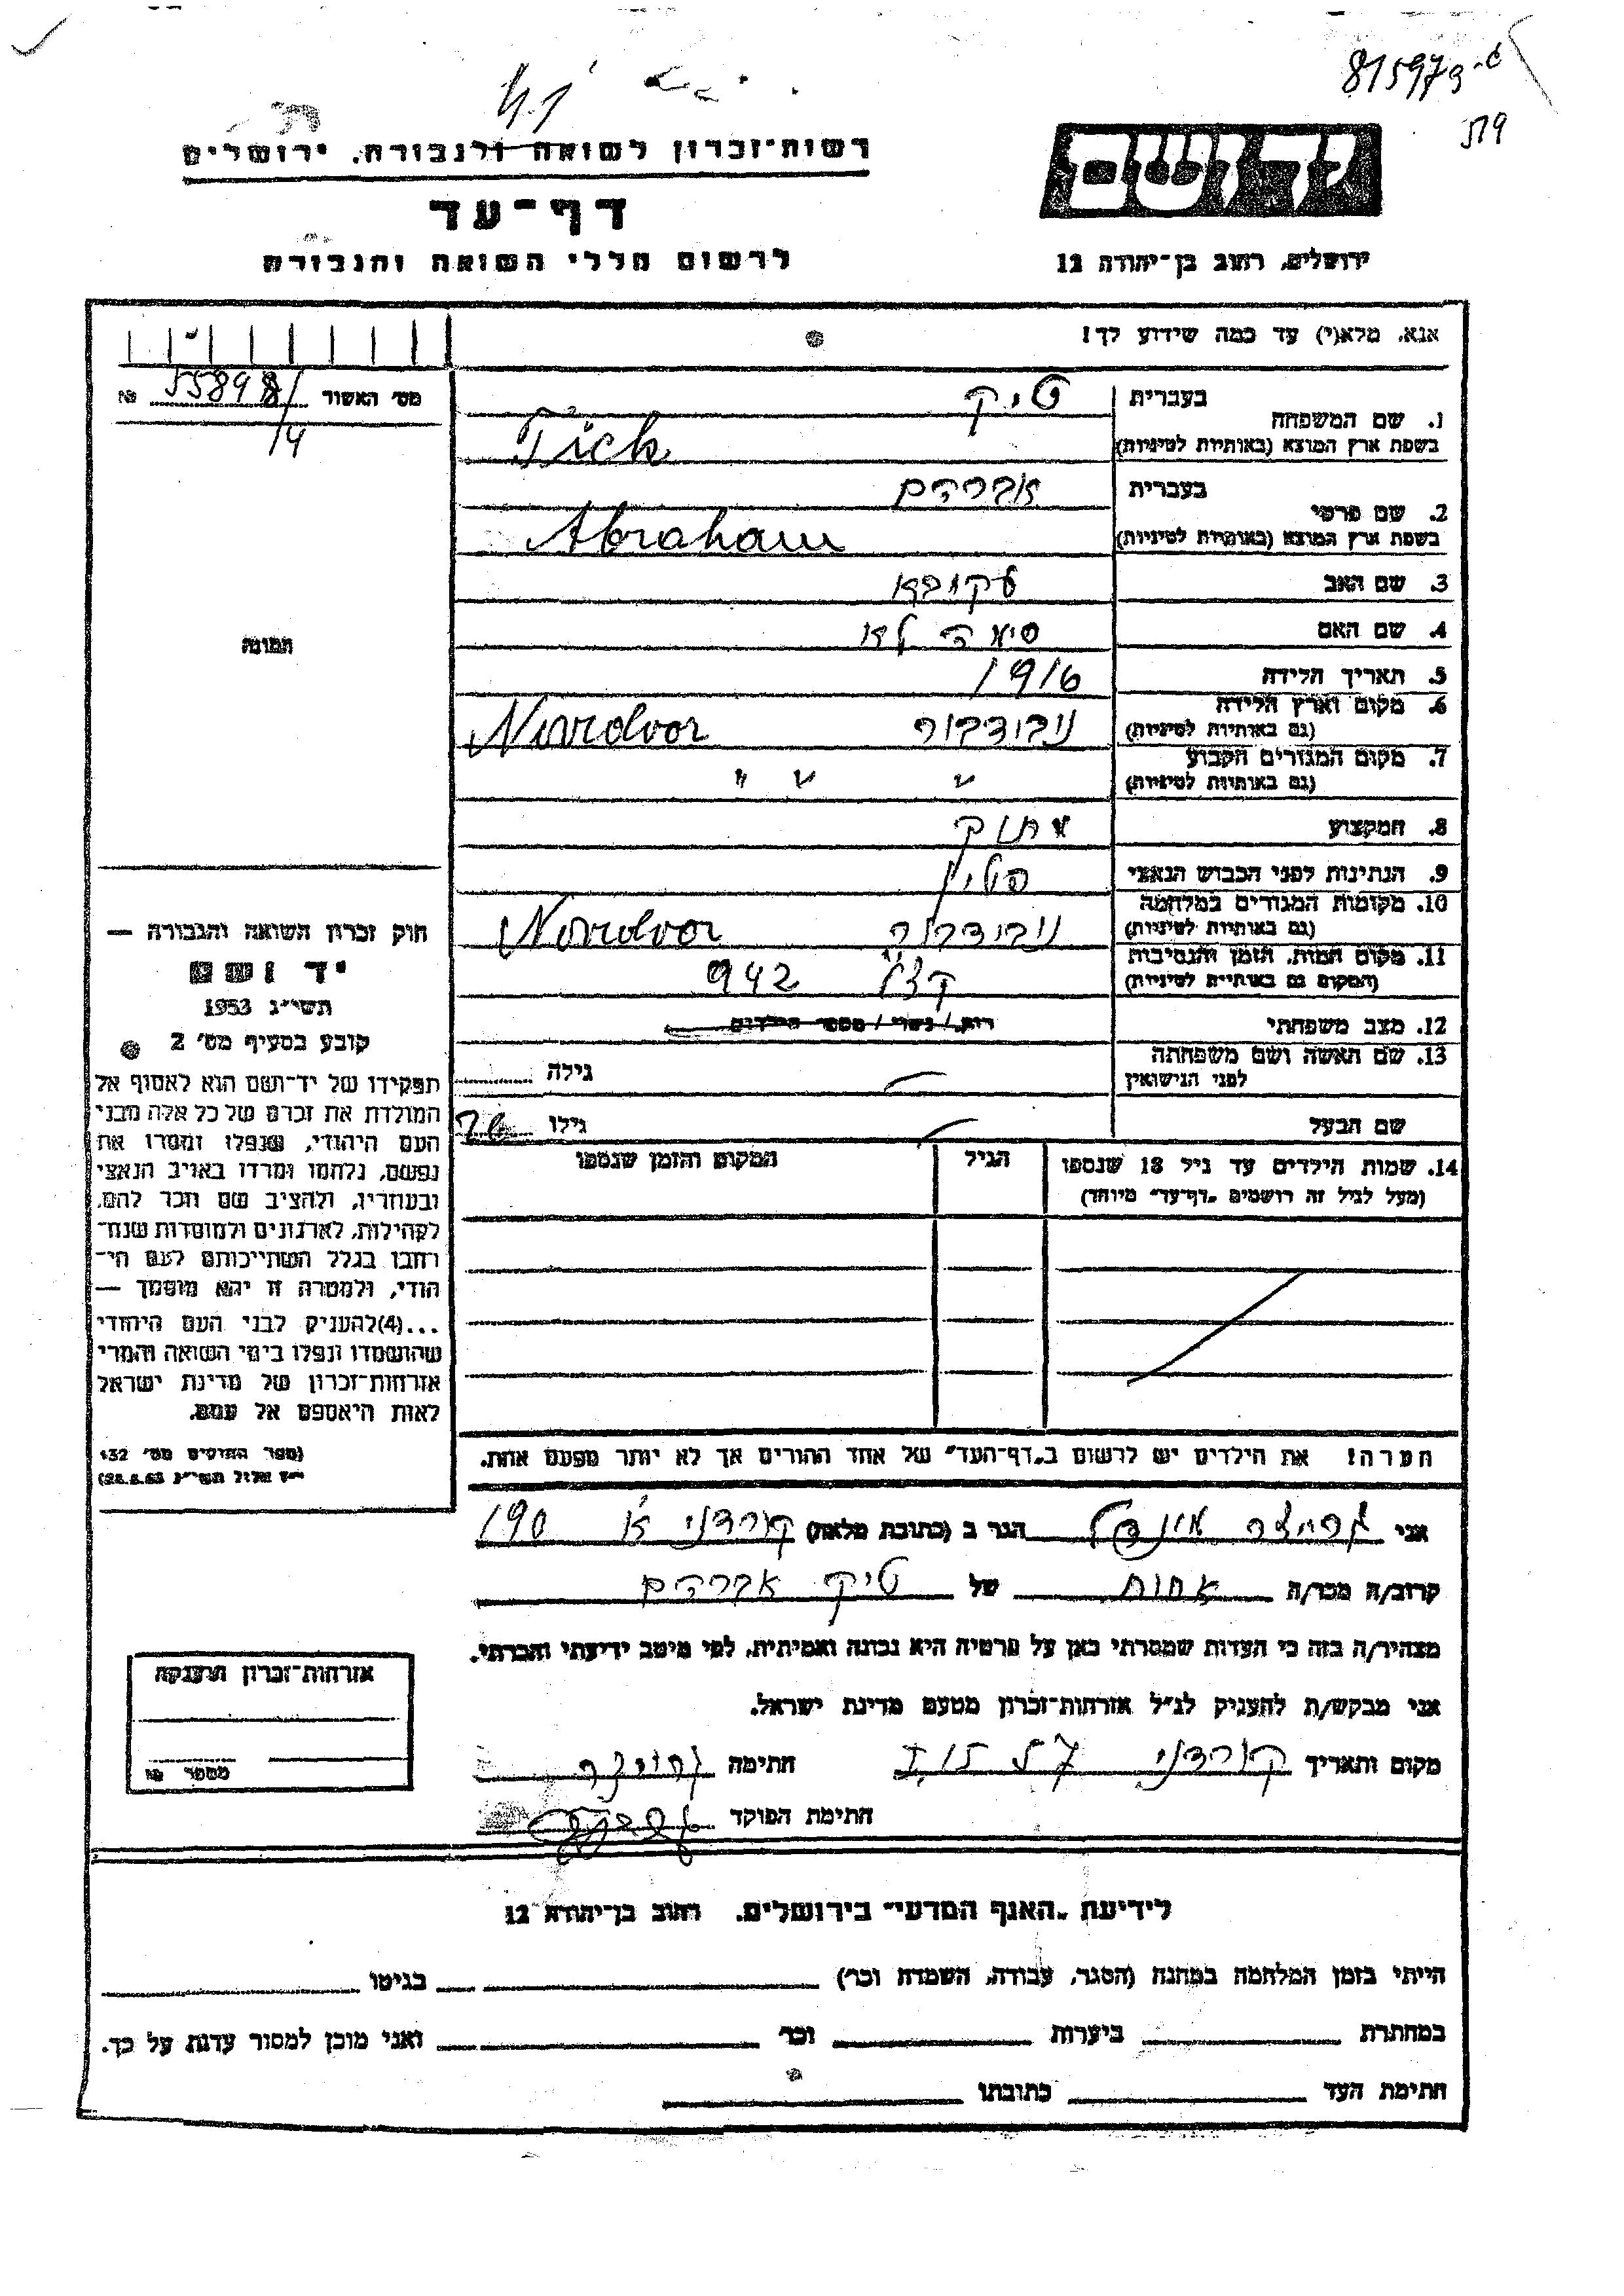 815979
רשות־זכרון לשואה ולגבורה, ירושלים
יד ושם
דף־עד
לרשום חללי השואה והגבורה
ירושלים, רחוב בן־יהודה 12
אנא, מלא(י) עד כמה שידוע לך!
מס׳ האשור 55898 №
14
1. שם המשפחה
בעברית טיק
בשפת ארץ המוצא (באותיות לטיניות) Tick
2. שם פרטי
בעברית אברהם
בשפת ארץ המוצא (באותיות לטיניות) Abraham
3. שם האב עקובא
4. שם האם סימה לאה
5. תאריך הלידה 1916
6. מקום וארץ הלידה נובודבור Novrdvor
(גם באותיות לטיניות)
7. מקום המגורים הקבוע " " "
(גם באותיות לטיניות)
8. המקצוע
9. הנתינות לפני הכבוש הנאצי פולין
10. מקומות המגורים במלחמה נובודבור Novrdvor
(גם באותיות לטיניות)
11. מקום המות, הזמן והנסיבות 942
(המקום גם באותיות לטיניות)
12. מצב משפחתי רוק / נשוי / מספר הילדים
13. שם האשה ושם משפחתה גילה
לפני הנישואין
שם הבעל גילו 26
14. שמות הילדים עד גיל 18 שנספו הגיל המקום והזמן שנספו
(מעל לגיל זה רושמים „דף־עד״ מיוחד)
התמונה
חוק זכרון השואה והגבורה —
יד ושם
תשי״ג 1953
קובע בסעיף מס׳ 2
תפקידו של יד־ושם הוא לאסוף אל
המולדת את זכרם של כל אלה מבני
העם היהודי, שנפלו ומסרו את
נפשם, נלחמו ומרדו באויב הנאצי
ובעוזריו, ולהציב שם וזכר להם,
לקהילות, לארגונים ולמוסדות שנח־
רבו בגלל השתייכותם לעם הי־
הודי, ולמטרה זו יהא מוסמך —
...(4) להעניק לבני העם היהודי
שהושמדו ונפלו בימי השואה והמרי
אזרחות־זכרון של מדינת ישראל
לאות היאספם אל עמם.
(ספר החוקים מס׳ 132
הערה! את הילדים יש לרשום ב„דף־העד״ של אחד ההורים אך לא יותר מפעם אחת.
אני מינדל הגר ב (כתובת מלאה) קורדני א׳ 190
קרוב/ה מכר/ה אחות של טיק אברהם
מצהיר/ה בזה כי העדות שמסרתי כאן על פרטיה היא נכונה ואמיתית, לפי מיטב ידיעתי והכרתי.
אני מבקש/ת להעניק לנ״ל אזרחות־זכרון מטעם מדינת ישראל.
מקום ותאריך קורדני חתימה
חתימת הפוקד
אזרחות־זכרון הוענקה
מספר №
לידיעת „האגף המדעי״ בירושלים, רחוב בן־יהודה 12
הייתי בזמן המלחמה במחנה (הסגר, עבודה, השמדה וכו׳) בגיטו
במחתרת ביערות וכו׳ ואני מוכן למסור עדות על כך.
חתימת העד כתובתו